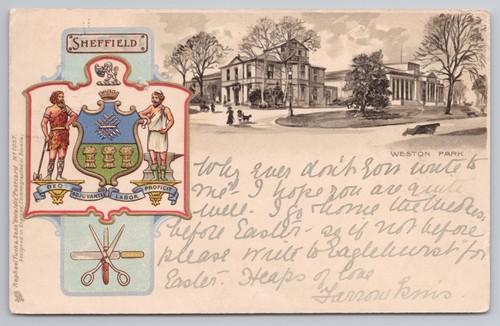 SHEFFIELD
WESTON PARK
DEO ADJUVANTE LABOR PROFICIT
Raphael Tuck & Sons' "Heraldic" Postcard No 1037.
Why ever don't you write to
me? I hope you are quite
well. I go home the Wednes.
before Easter - so if not before
please write to Eaglehurst for
Easter. Heaps of love